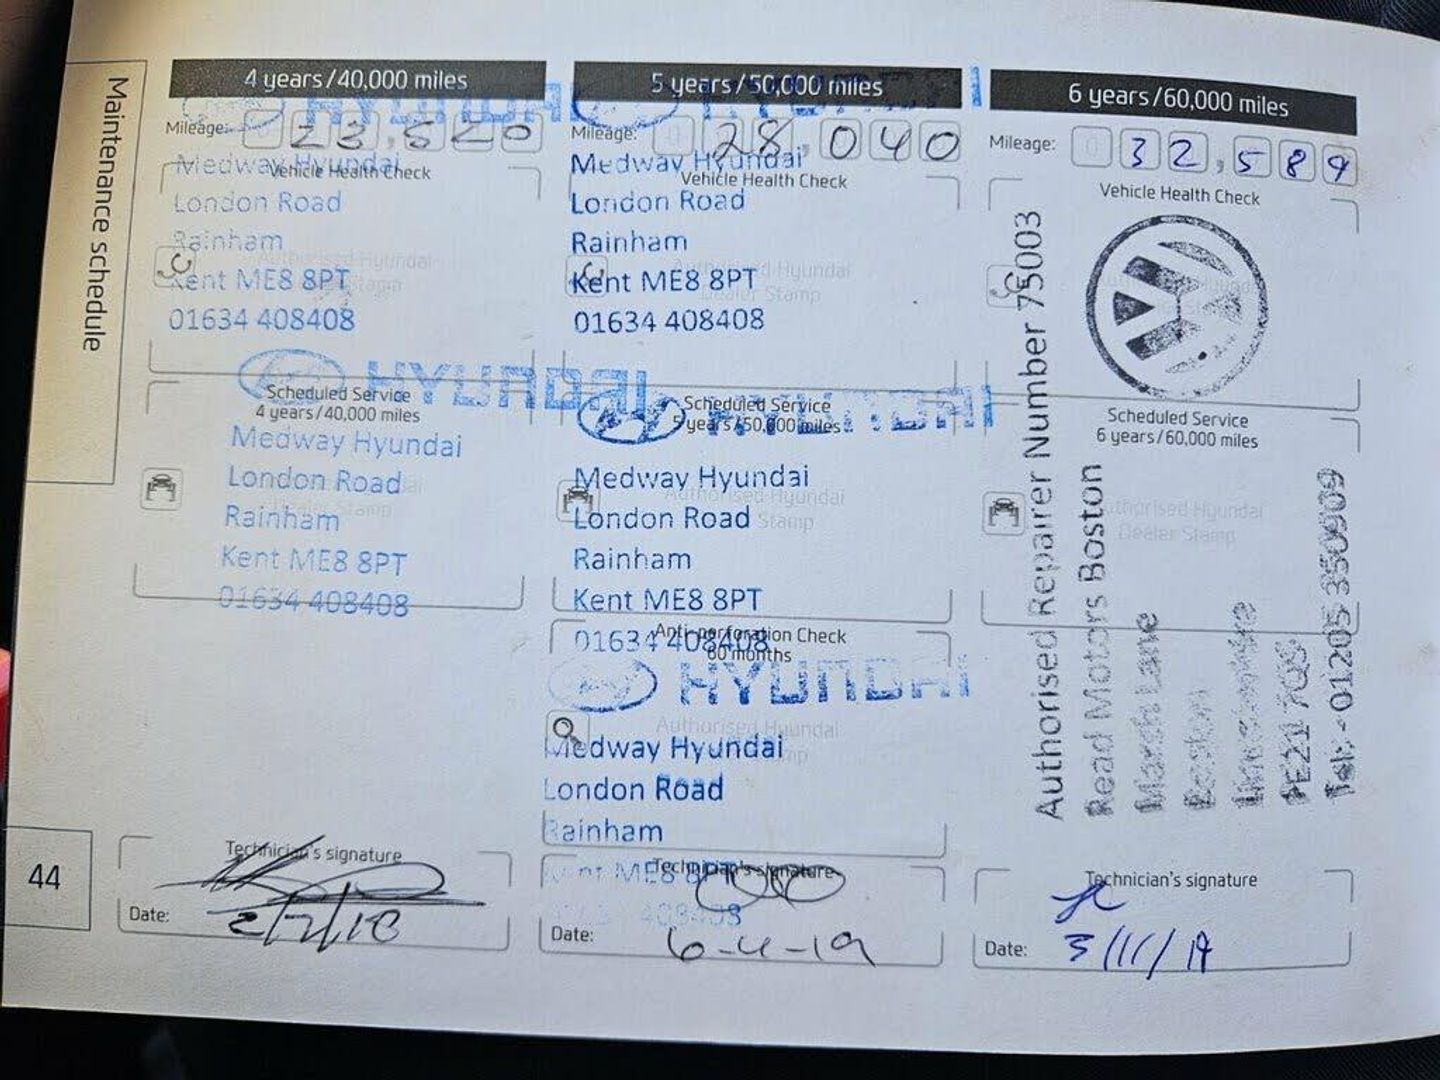 Maintenance schedule
44
4 years/40,000 miles
HYUNDAI
Mileage: 23,520
Medway Hyundai
Vehicle Health Check
London Road
Rainham
Authorised Hyundai
Kent ME8 8PT
01634 408408
HYUNDAI
Scheduled Service
4 years/40,000 miles
Medway Hyundai
London Road
Rainham
Kent ME8 8PT
01634 408408
Technician's signature
Date:
5 years/50,000 miles
HYUNDAI
Mileage: 0 28,040
Medway Hyundai
Vehicle Health Check
London Road
Rainham
Authorised Hyundai
Kent ME8 8PT
Dealer Stamp
01634 408408
HYUNDAI
Scheduled Service
5 years/50,000 miles
Medway Hyundai
Authorised Hyundai
London Road
Stamp
Rainham
Kent ME8 8PT
01634 408408
Anti-perforation Check
60 months
HYUNDAI
Authorised Hyundai
Medway Hyundai
London Road
Rainham
Kent ME8 8PT
Technician's signature
408408
Date: 6-4-19
6 years/60,000 miles
Mileage: 0 32,589
Vehicle Health Check
Scheduled Service
6 years/60,000 miles
Authorised Hyundai
Dealer Stamp
Authorised Repairer Number 75003
Read Motors Boston
Marsh Lane
Boston
Lincolnshire
PE21 7QS
Tel:-01205 350909
Technician's signature
Date: 3/11/19